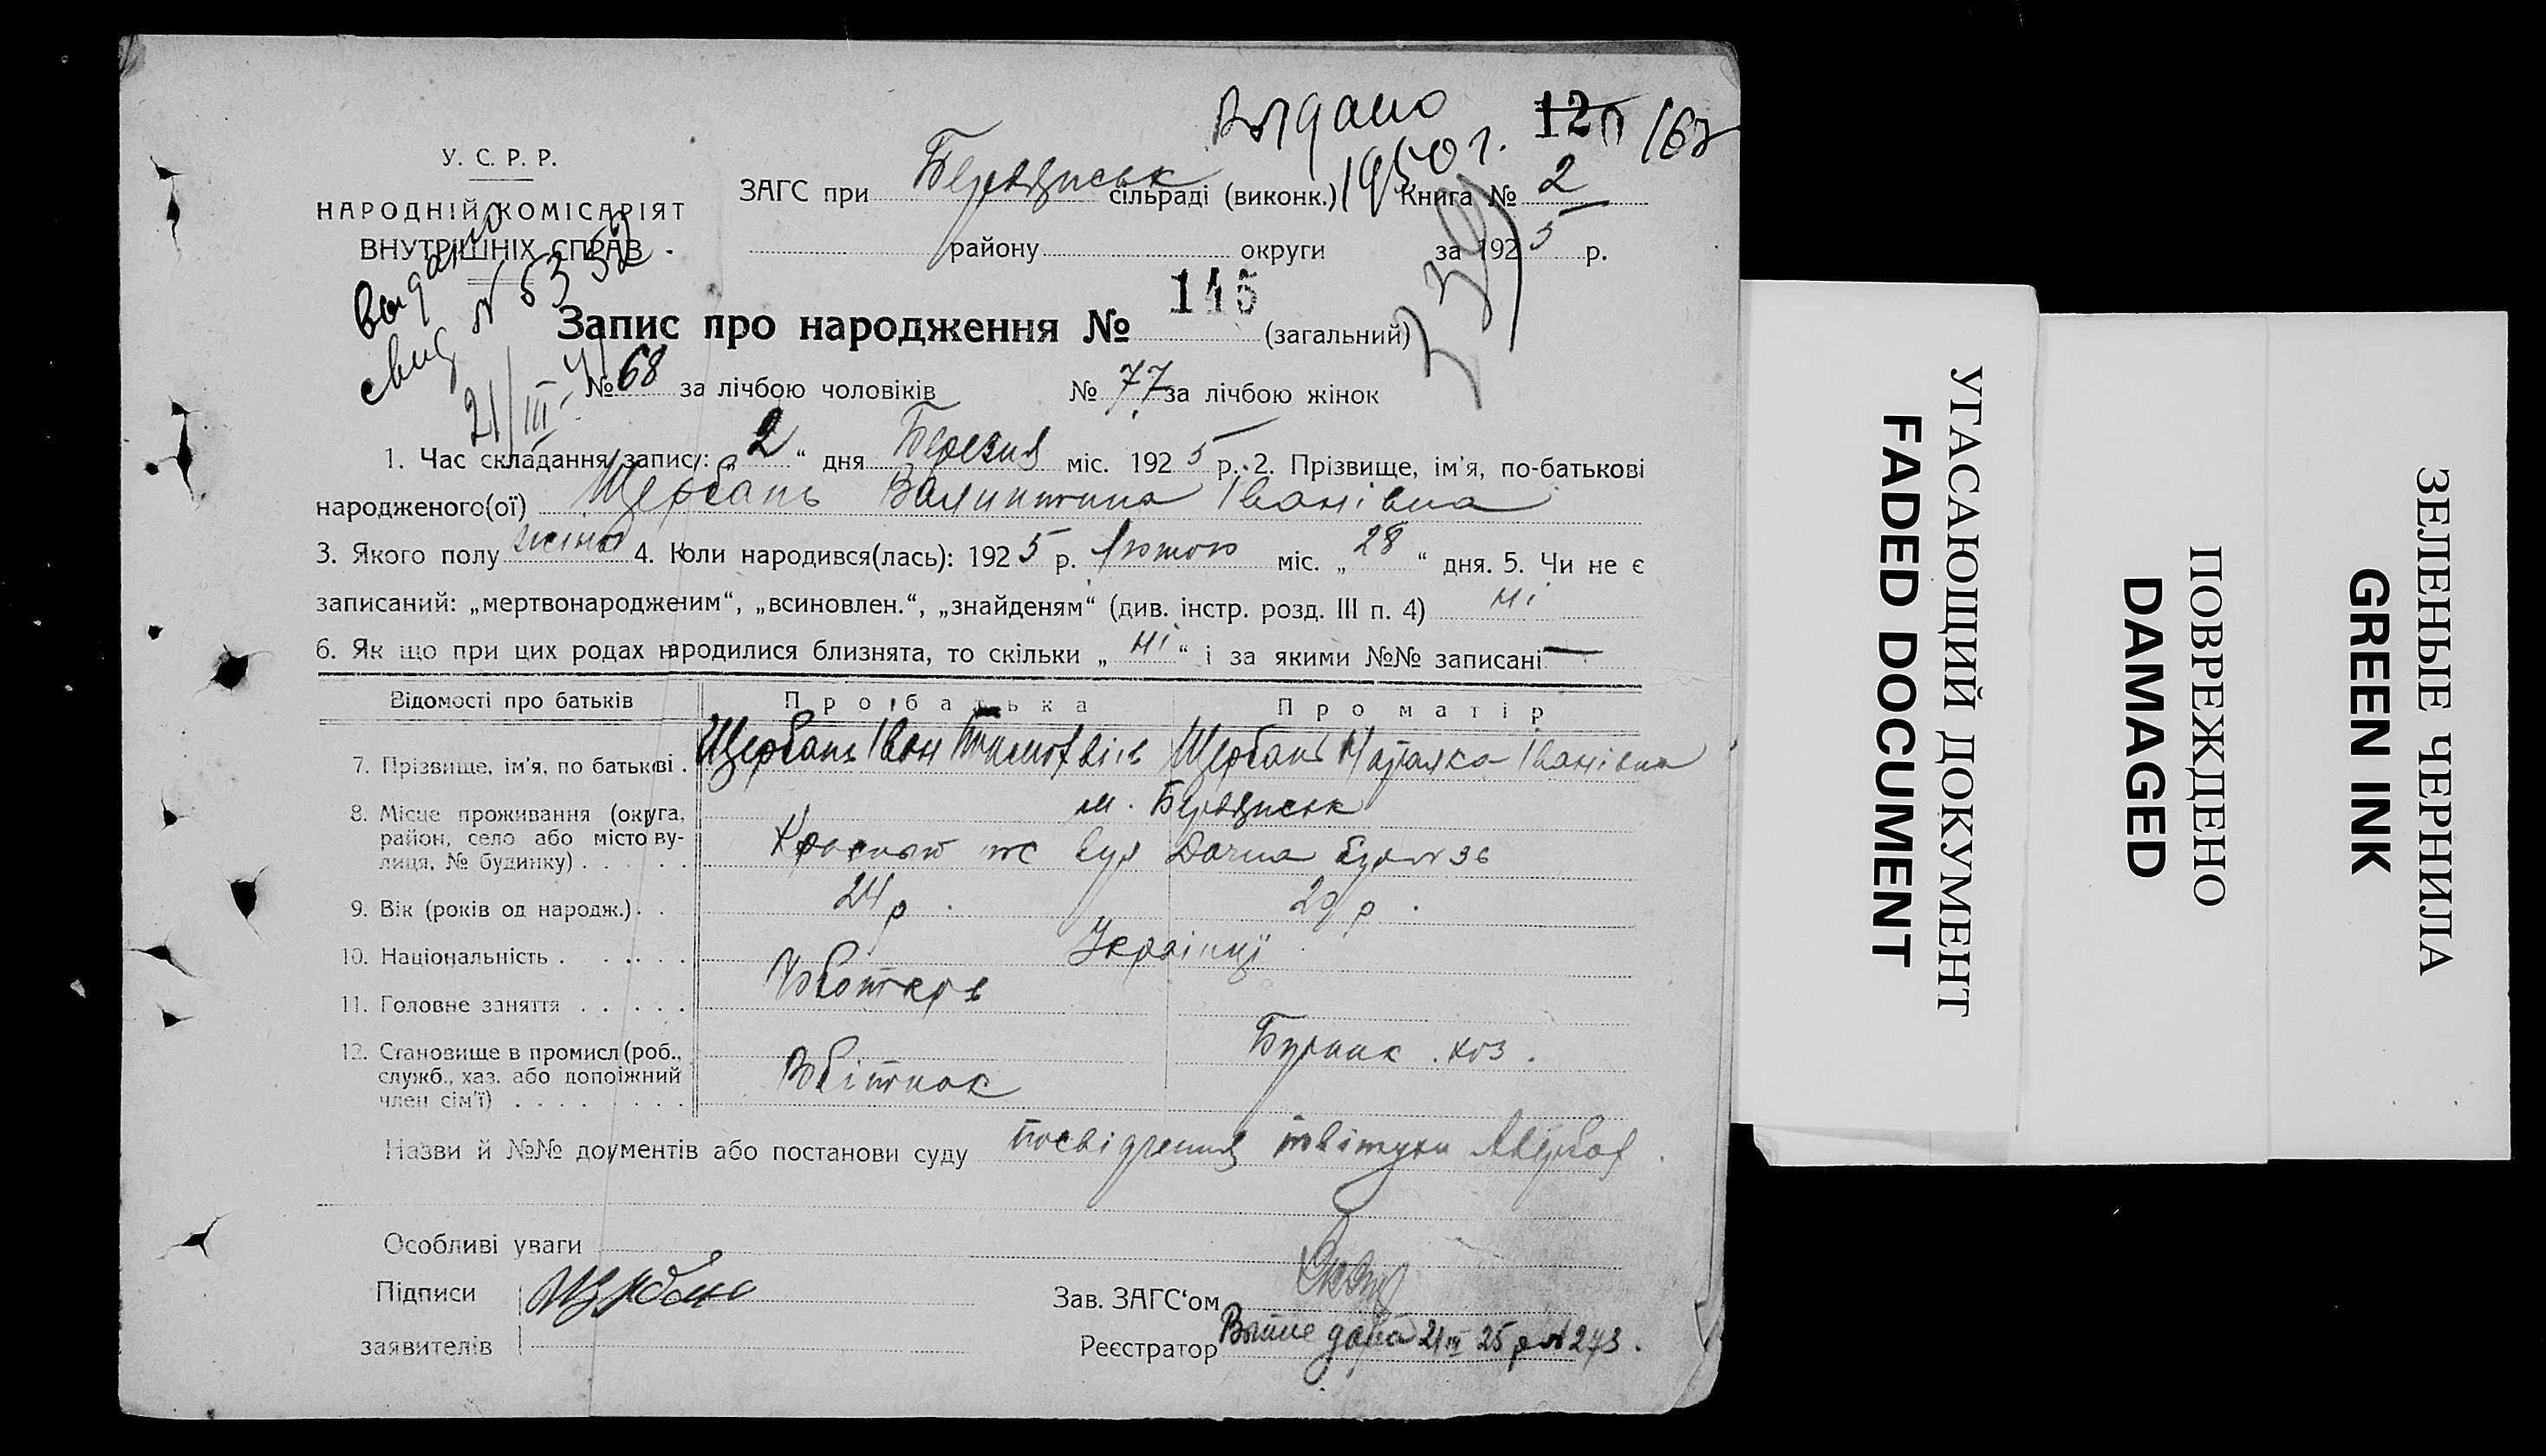 Выдано
1950 г.
12
У. С. Р. Р.
НАРОДНІЙ КОМІСАРІЯТ
ВНУТРІШНІХ СПРАВ
ЗАГС при сільраді (виконк.) Книга № 2
району округи за 1925 р.
Выдано
свид № 5352
21/III-41
Запис про народження № 145 (загальний)
№ 68 за лічбою чоловіків № 77 за лічбою жінок
1. Час складання запису: „2“ дня Березня міс. 1925 р. 2. Прізвище, ім'я, по-батькові
народженого(ої) Щербань Валинтина Іванівна
3. Якого полу жіно 4. Коли народився(лась): 1925 р. Лютого міс. „28“ дня. 5. Чи не є
записаний: „мертвонародженим“, „всиновлен.“, „знайденям“ (див. інстр. розд. III п. 4) ні
6. Як що при цих родах народилися близнята, то скільки „ні“ і за якими №№ записані —
Відомості про батьків Про батька Про матір
7. Прізвище, ім'я, по батькові . Щербань Іван Щербань Наталка Іванівна
8. Місце проживання (округа,
район, село або місто ву-
лиця, № будинку) . . . . . м. вул Дачна буд № 36
9. Вік (років од народж.) . . 24 р. 29 р.
10. Національність . . . . . . Українці
11. Головне заняття . . . . .
12. Становище в промисл (роб.,
служб., хаз. або допоіжний
член сім'ї) . . . . . . .
Назви й №№ документів або постанови суду посвідчення
Особливі уваги
Підписи Щербань Зав. ЗАГС'ом
заявителів Реєстратор 21 III 25 р № 273.
УГАСАЮЩИЙ ДОКУМЕНТ
FADED DOCUMENT
ПОВРЕЖДЕНО
DAMAGED
ЗЕЛЕНЫЕ ЧЕРНИЛА
GREEN INK